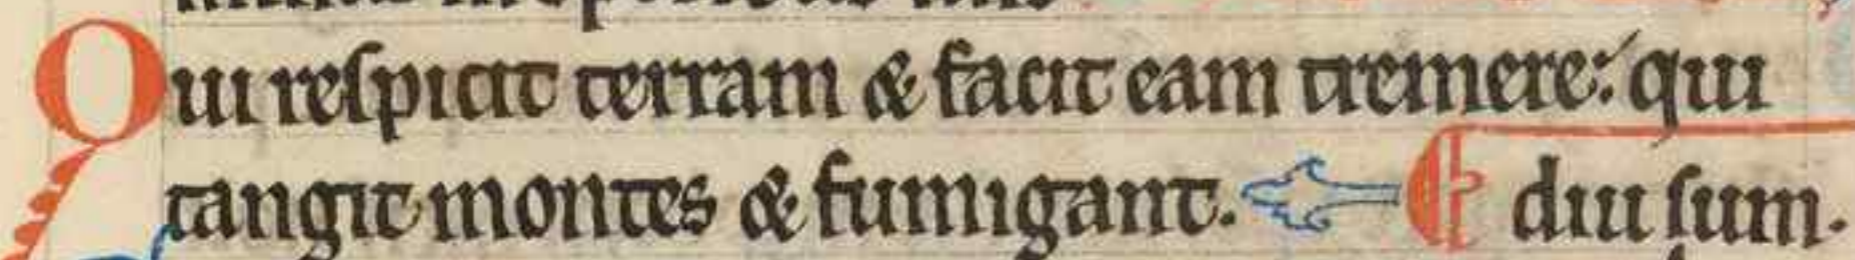 Qui respicit terram & facit eam tremere: qui
tangit montes & fumigant. diu sum.